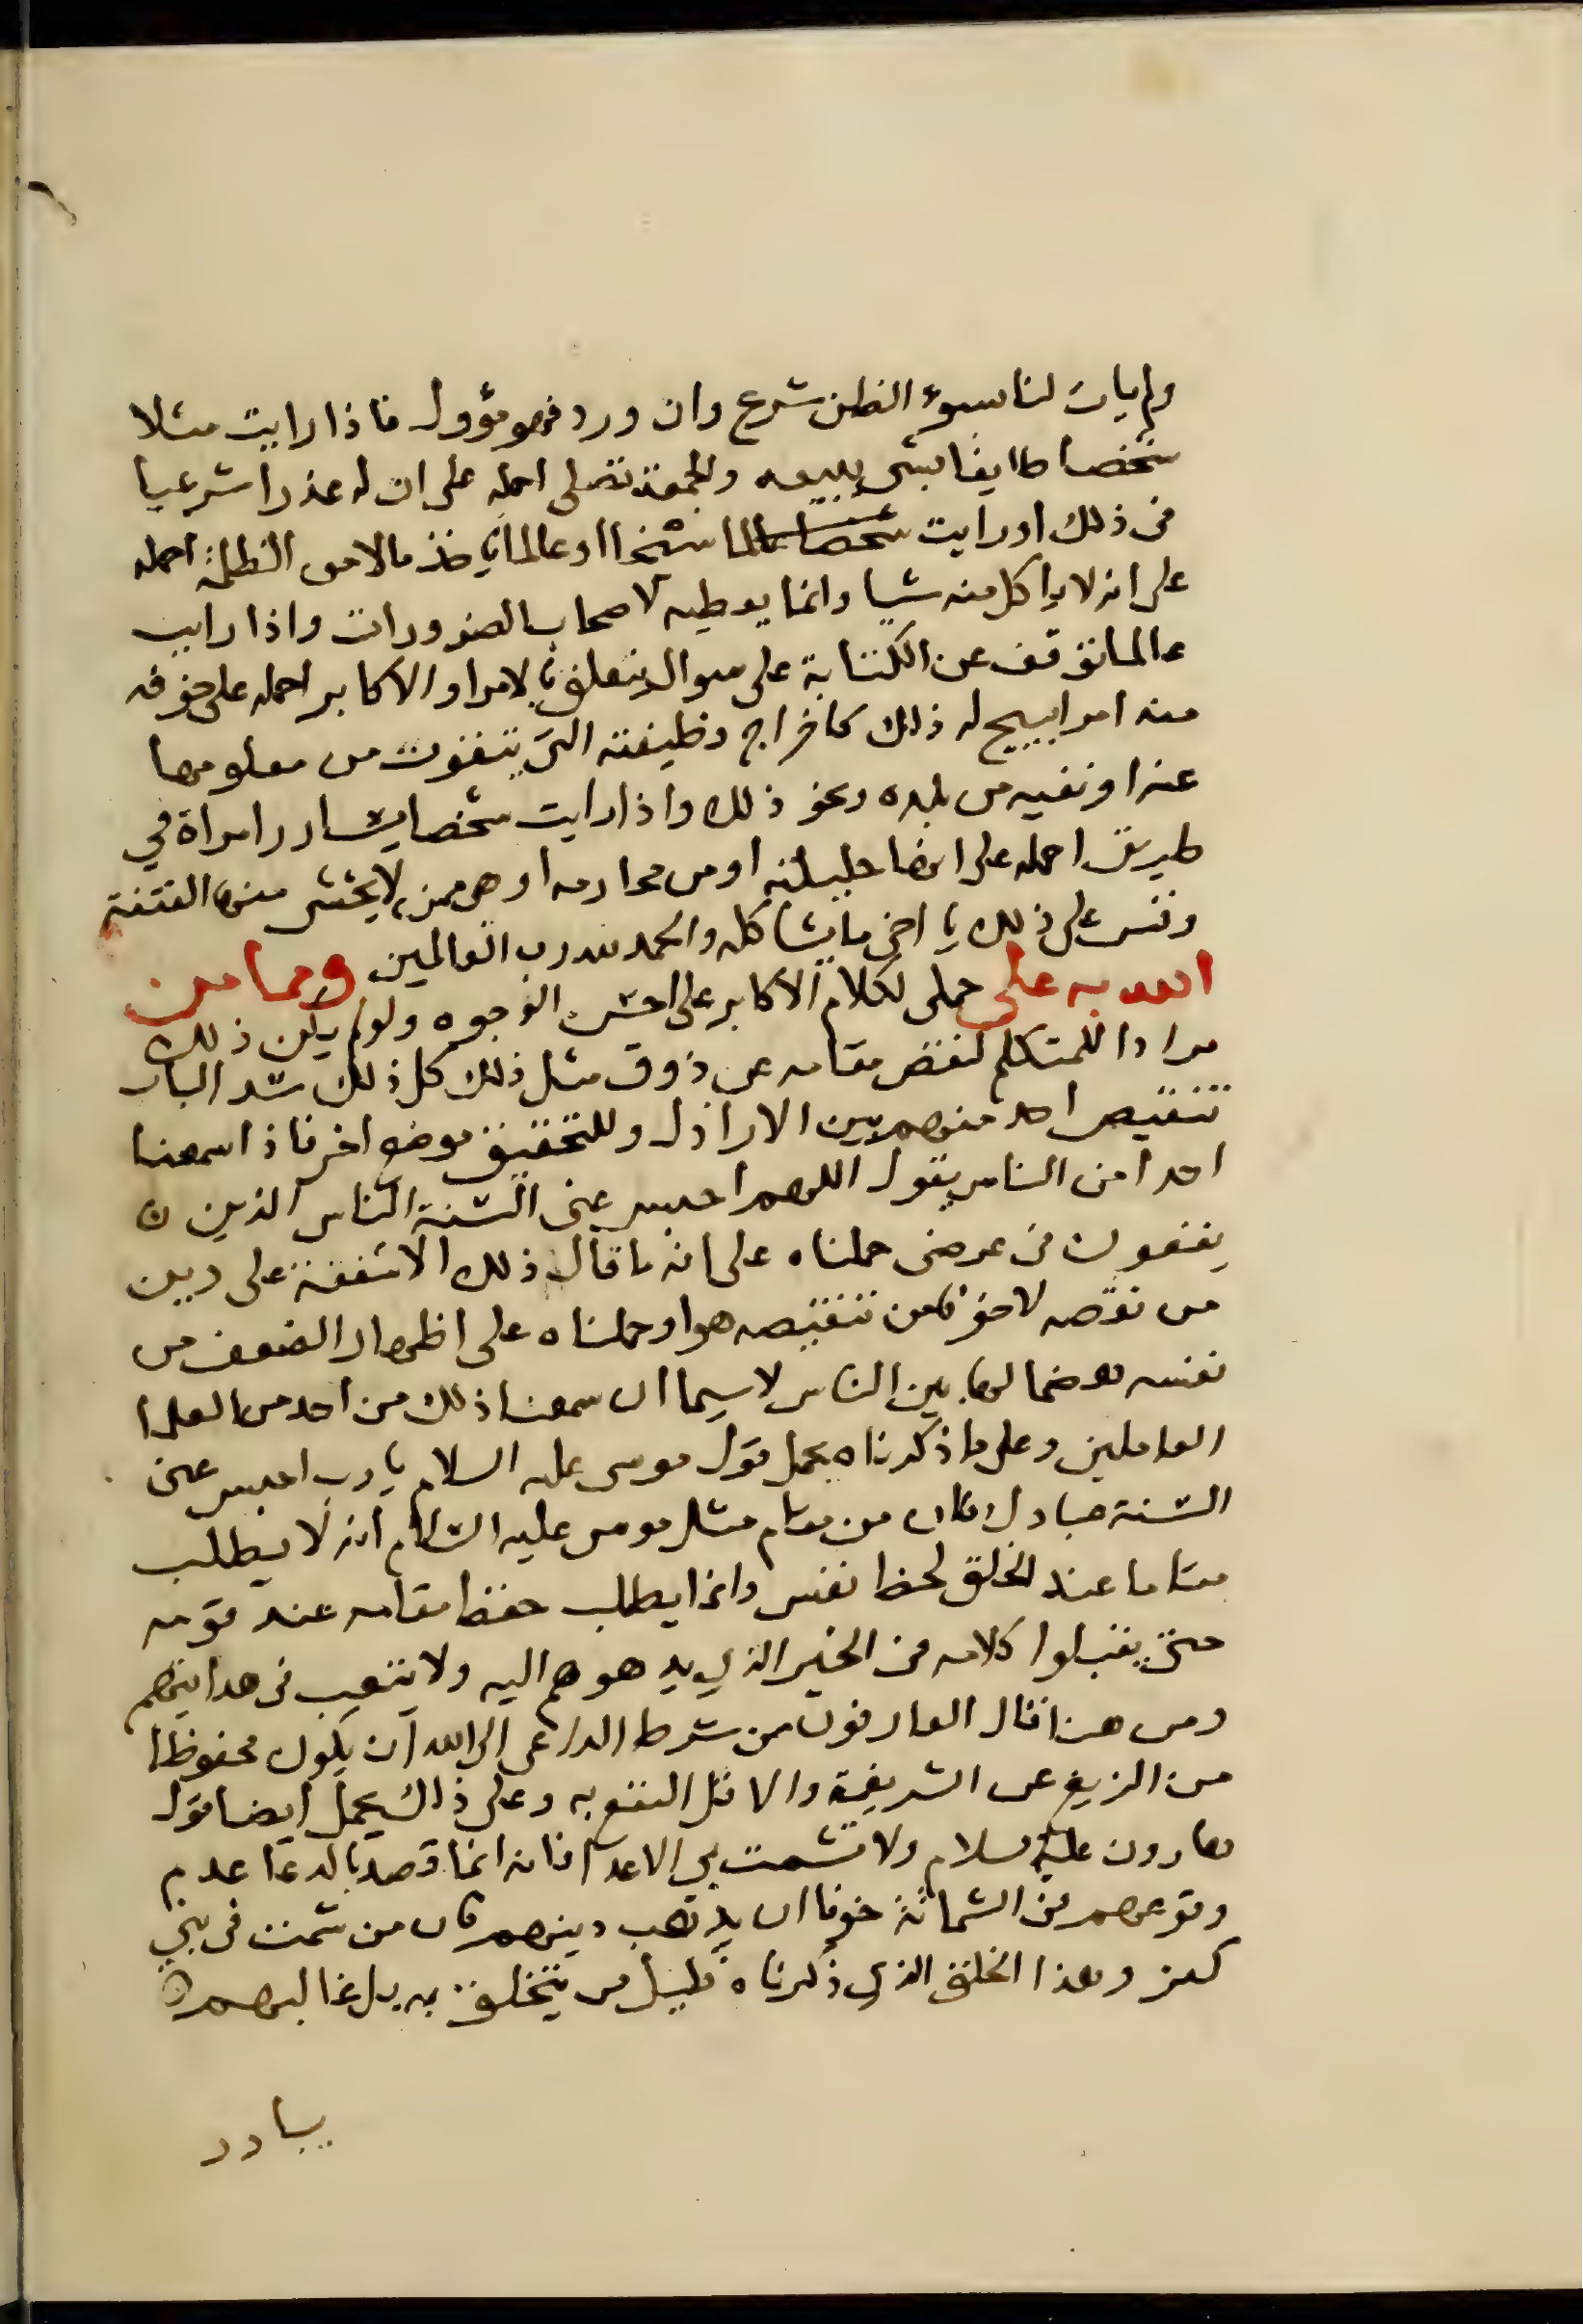 ولم يات لنا بسوء الظن شرع وان ورد فهو مؤول فاذا رايت مثلا
شخصا طايفا بشي يبيعه والجمعة تصلى احمله على ان له عذرا شرعيا
في ذلك او رايت شخصا عالما شيخا او عالما ياخذ مالا من الظلمة احمله
على انه لا ياكل منه شيا وانما يعطيه لاصحاب الضرورات واذا رايت
عالما توقف عن الكتابة على سوال يتعلق بالامرا والاكابر احمله على خوفه
منه امرا يبيح له ذلك كاخراج وظيفته التي يتقوت من معلومها
عنه او نفيه من بلده ونحو ذلك واذا رايت شخصا يشارر امراة في
طريق احمله على انها حليلته او من محارمه او هي ممن لا يخشى منها الفتنة
وقس على ذلك يا اخي ما يشاكله والحمد لله رب العالمين ومما من
الله به على حملى لكلام الاكابر على احسن الوجوه ولو لم يكن ذلك
مرادا للمتكلم لنقص مقامه عن ذوق مثل ذلك كل ذلك سدا لباب
تنقيص احد منهم بين الاراذل وللتحقيق موضع اخر فاذا سمعنا
احدا من الناس يقول اللهم احبس عنى السنة الناس الذين
يقعون في عرضى حملناه على انه ما قال ذلك الا شفقة على دين
من نقصه لا خوفا من تنقيصه هو او حملناه على اظهار الضعف من
نفسه هضما لها بين الناس لا سيما ان سمعنا ذلك من احد من العلما
العاملين وعلى ما ذكرناه يحمل قول موسى عليه السلام يا رب احبس عنى
السنة عبادك فان من مقام مثل موسى عليه السلام انه لا يطلب
مقاما عند الخلق لحظ نفس وانما يطلب حفظ مقامه عند قومه
حتى يقبلوا كلامه في الخير الذي يدعوهم اليه ولا يتعب في هدايتهم
ومن هنا قال العارفون من شرط الداعى الى الله ان يكون محفوظا
من الزيغ عن الشريعة والا قل النفع به وعلى ذلك يحمل ايضا قول
هارون عليه السلام ولا تشمت بي الاعدا فانه انما قصد بالدعا عدم
وقوعهم في الشماتة خوفا ان يذهب دينهم فان من شمت في نبي
كفر وهذا الخلق الذي ذكرناه قليل من يتخلق به بل غالبهم
يبادر